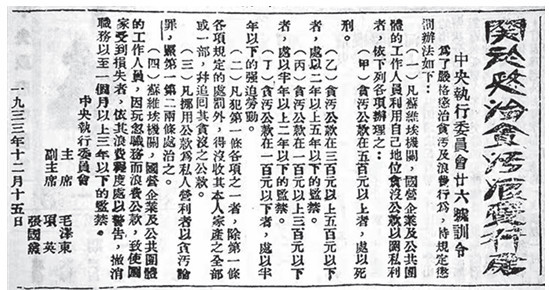 關於懲治貪污浪費行為
中央執行委員會廿六號訓令
為了嚴格懲治貪污及浪費行為，特規定懲
罰辦法如下：
（一）凡蘇維埃機關，國營企業及公共團
體的工作人員利用自己地位貪沒公款以圖私利
者，依下列各項辦理之：
（甲）貪污公款在五百元以上者，處以死
刑。
（乙）貪污公款在三百元以上五百元以下
者，處以二年以上五年以下的監禁。
（丙）貪污公款在一百元以上三百元以下
者，處以半年以上二年以下的監禁。
（丁）貪污公款在一百元以下者，處以半
年以下的强迫勞動。
（二）凡犯第一條各項之一者，除第一條
各項規定的處罰外，得沒收其本人家產之全部
或一部，幷追回其貪沒之公款。
（三）凡挪用公款為私人營利者以貪污論
罪，照第一第二兩條處治之。
（四）蘇維埃機關，國營企業及公共團體
的工作人員，因玩忽職務而浪費公款，致使國
家受到損失者，依其浪費程度處以警告，撤消
職務以至一個月以上三年以下的監禁。
中央執行委員會
主席 毛澤東
副主席 項英
張國燾
一九三三年十二月十五日